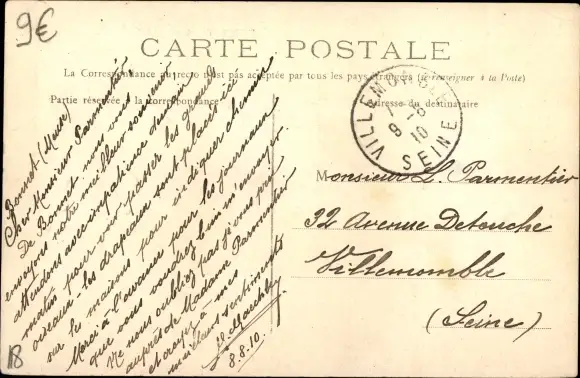 9€
CARTE POSTALE
La Correspondance au recto n'est pas acceptée par tous les pays étrangers (se renseigner à la Poste)
Partie réservée à la correspondance
Adresse du destinataire
VILLEMOMBLE
9 - 8
10
SEINE
Monsieur L. Parmentier
32 Avenue Detouche
Villemomble
(Seine)
Bonnet (Meuse)
Cher Monsieur Parmentier,
De Bonnet nous vous
envoyons notre meilleur souvenir
attendons avec impatience demain
matin pour voir passer les grands
oiseaux - les drapeaux sont placés ici
sur les maisons pour indiquer chemin
Merci à l'avance pour les journaux
que vous voudrez bien m'envoyer.
Ne nous oubliez pas je vous prie
auprès de Madame Parmentier
et croyez à mes
meilleurs sentiments
8.8.10.
18